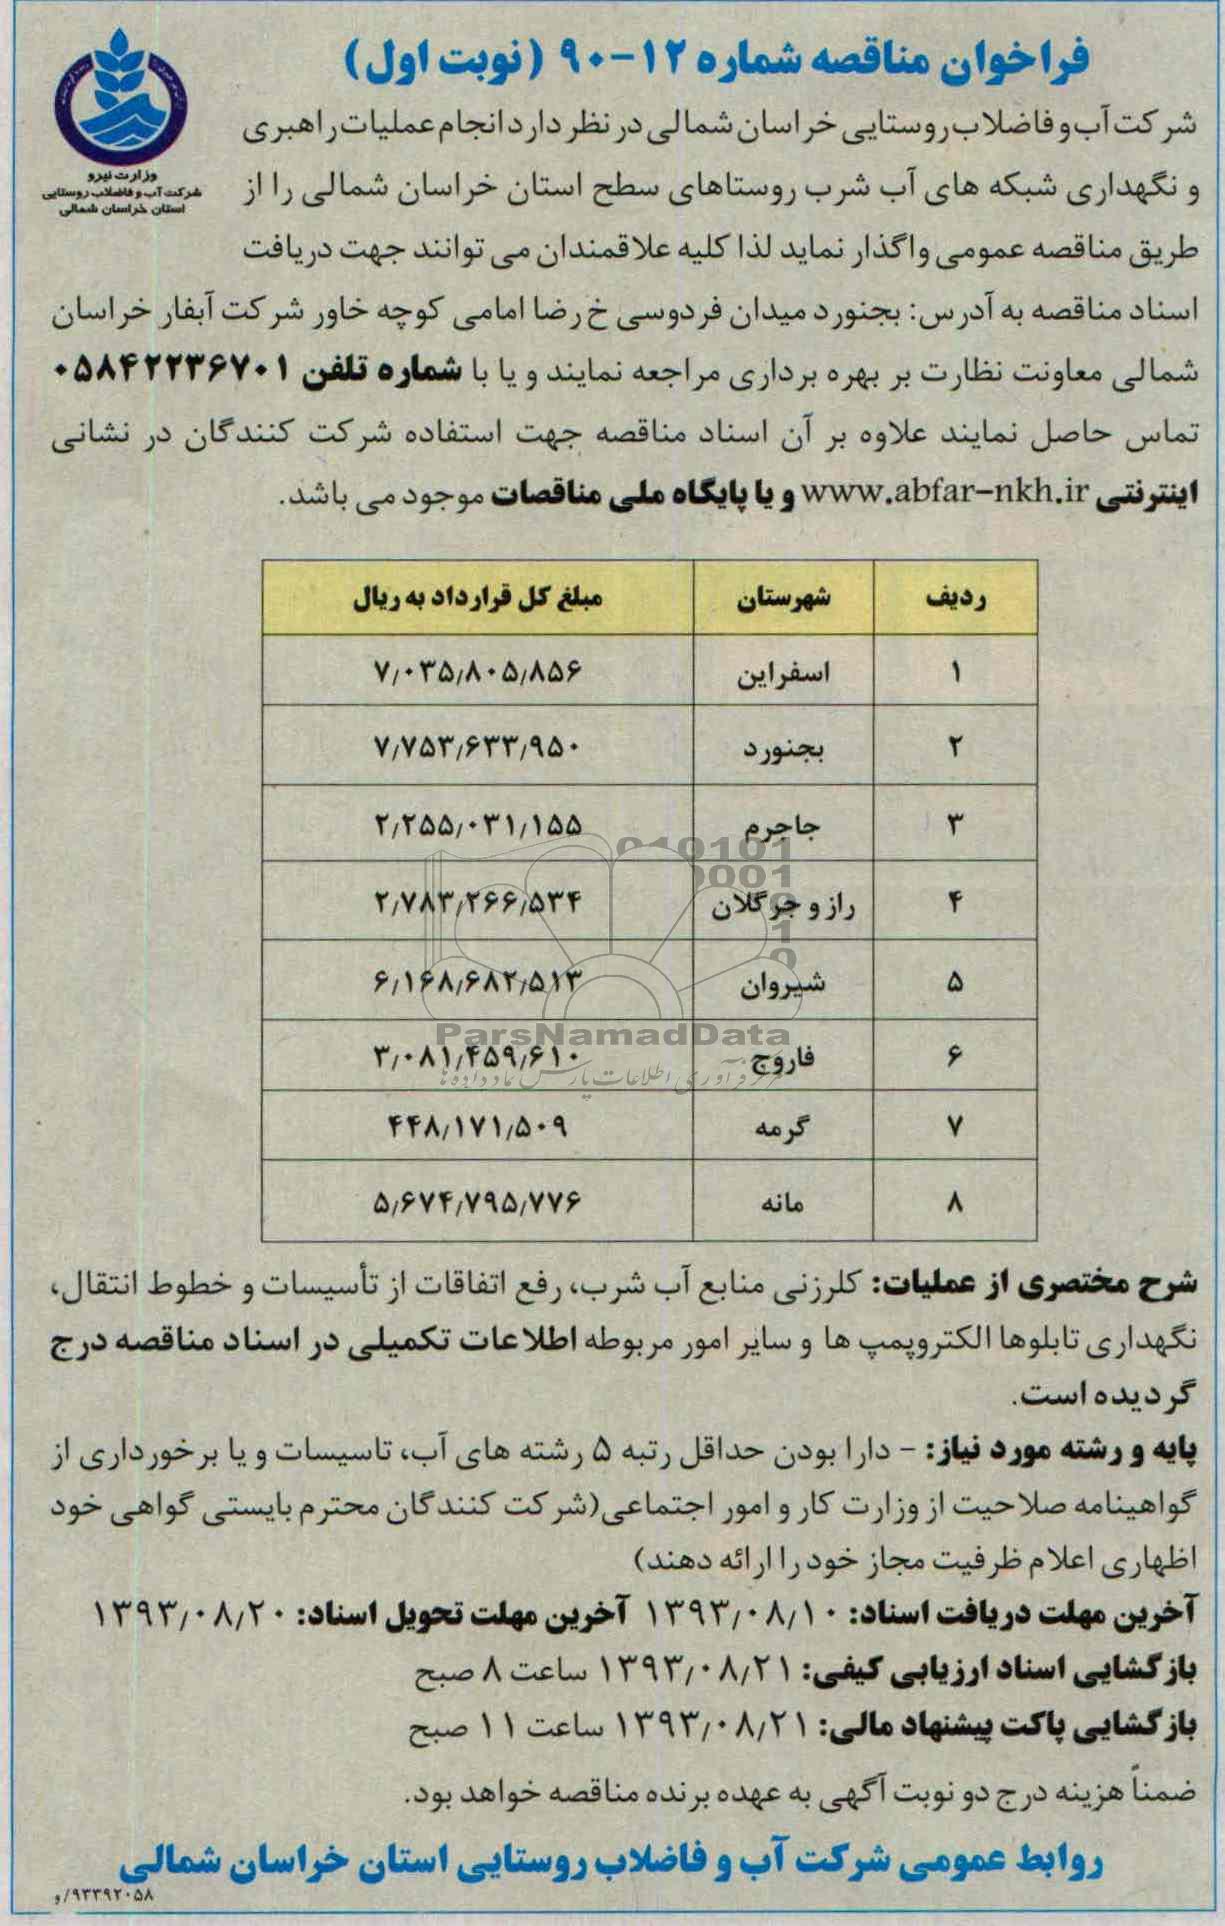 فراخوان مناقصه شماره ۱۲-۹۰ (نوبت اول)
وزارت نیرو
شرکت آب و فاضلاب روستایی
استان خراسان شمالی
شرکت آب و فاضلاب روستایی خراسان شمالی در نظر دارد انجام عملیات راهبری
و نگهداری شبکه های آب شرب روستاهای سطح استان خراسان شمالی را از
طریق مناقصه عمومی واگذار نماید لذا کلیه علاقمندان می توانند جهت دریافت
اسناد مناقصه به آدرس: بجنورد میدان فردوسی خ رضا امامی کوچه خاور شرکت آبفار خراسان
شمالی معاونت نظارت بر بهره برداری مراجعه نمایند و یا با شماره تلفن ۰۵۸۴۲۲۳۶۷۰۱
تماس حاصل نمایند علاوه بر آن اسناد مناقصه جهت استفاده شرکت کنندگان در نشانی
اینترنتی www.abfar-nkh.ir و یا پایگاه ملی مناقصات موجود می باشد.
ردیف شهرستان مبلغ کل قرارداد به ریال
۱ اسفراین ۷/۰۳۵/۸۰۵/۸۵۶
۲ بجنورد ۷/۷۵۳/۶۳۳/۹۵۰
۳ جاجرم ۲/۲۵۵/۰۳۱/۱۵۵
۴ راز و جرگلان ۲/۷۸۳/۲۶۶/۵۳۴
۵ شیروان ۶/۱۶۸/۶۸۲/۵۱۳
ParsNamadData
۶ فاروج ۳/۰۸۱/۴۵۹/۶۱۰
مرکز فرآوری اطلاعات پارس نماد داده ها
۷ گرمه ۴۴۸/۱۷۱/۵۰۹
۸ مانه ۵/۶۷۴/۷۹۵/۷۷۶
شرح مختصری از عملیات: کلرزنی منابع آب شرب، رفع اتفاقات از تأسیسات و خطوط انتقال،
نگهداری تابلوها الکتروپمپ ها و سایر امور مربوطه اطلاعات تکمیلی در اسناد مناقصه درج
گردیده است.
پایه و رشته مورد نیاز: - دارا بودن حداقل رتبه ۵ رشته های آب، تاسیسات و یا برخورداری از
گواهینامه صلاحیت از وزارت کار و امور اجتماعی(شرکت کنندگان محترم بایستی گواهی خود
اظهاری اعلام ظرفیت مجاز خود را ارائه دهند)
آخرین مهلت دریافت اسناد: ۱۳۹۳/۰۸/۱۰ آخرین مهلت تحویل اسناد: ۱۳۹۳/۰۸/۲۰
بازگشایی اسناد ارزیابی کیفی: ۱۳۹۳/۰۸/۲۱ ساعت ۸ صبح
بازگشایی پاکت پیشنهاد مالی: ۱۳۹۳/۰۸/۲۱ ساعت ۱۱ صبح
ضمناً هزینه درج دو نوبت آگهی به عهده برنده مناقصه خواهد بود.
روابط عمومی شرکت آب و فاضلاب روستایی استان خراسان شمالی
۹۳۳۹۲۰۵۸/و